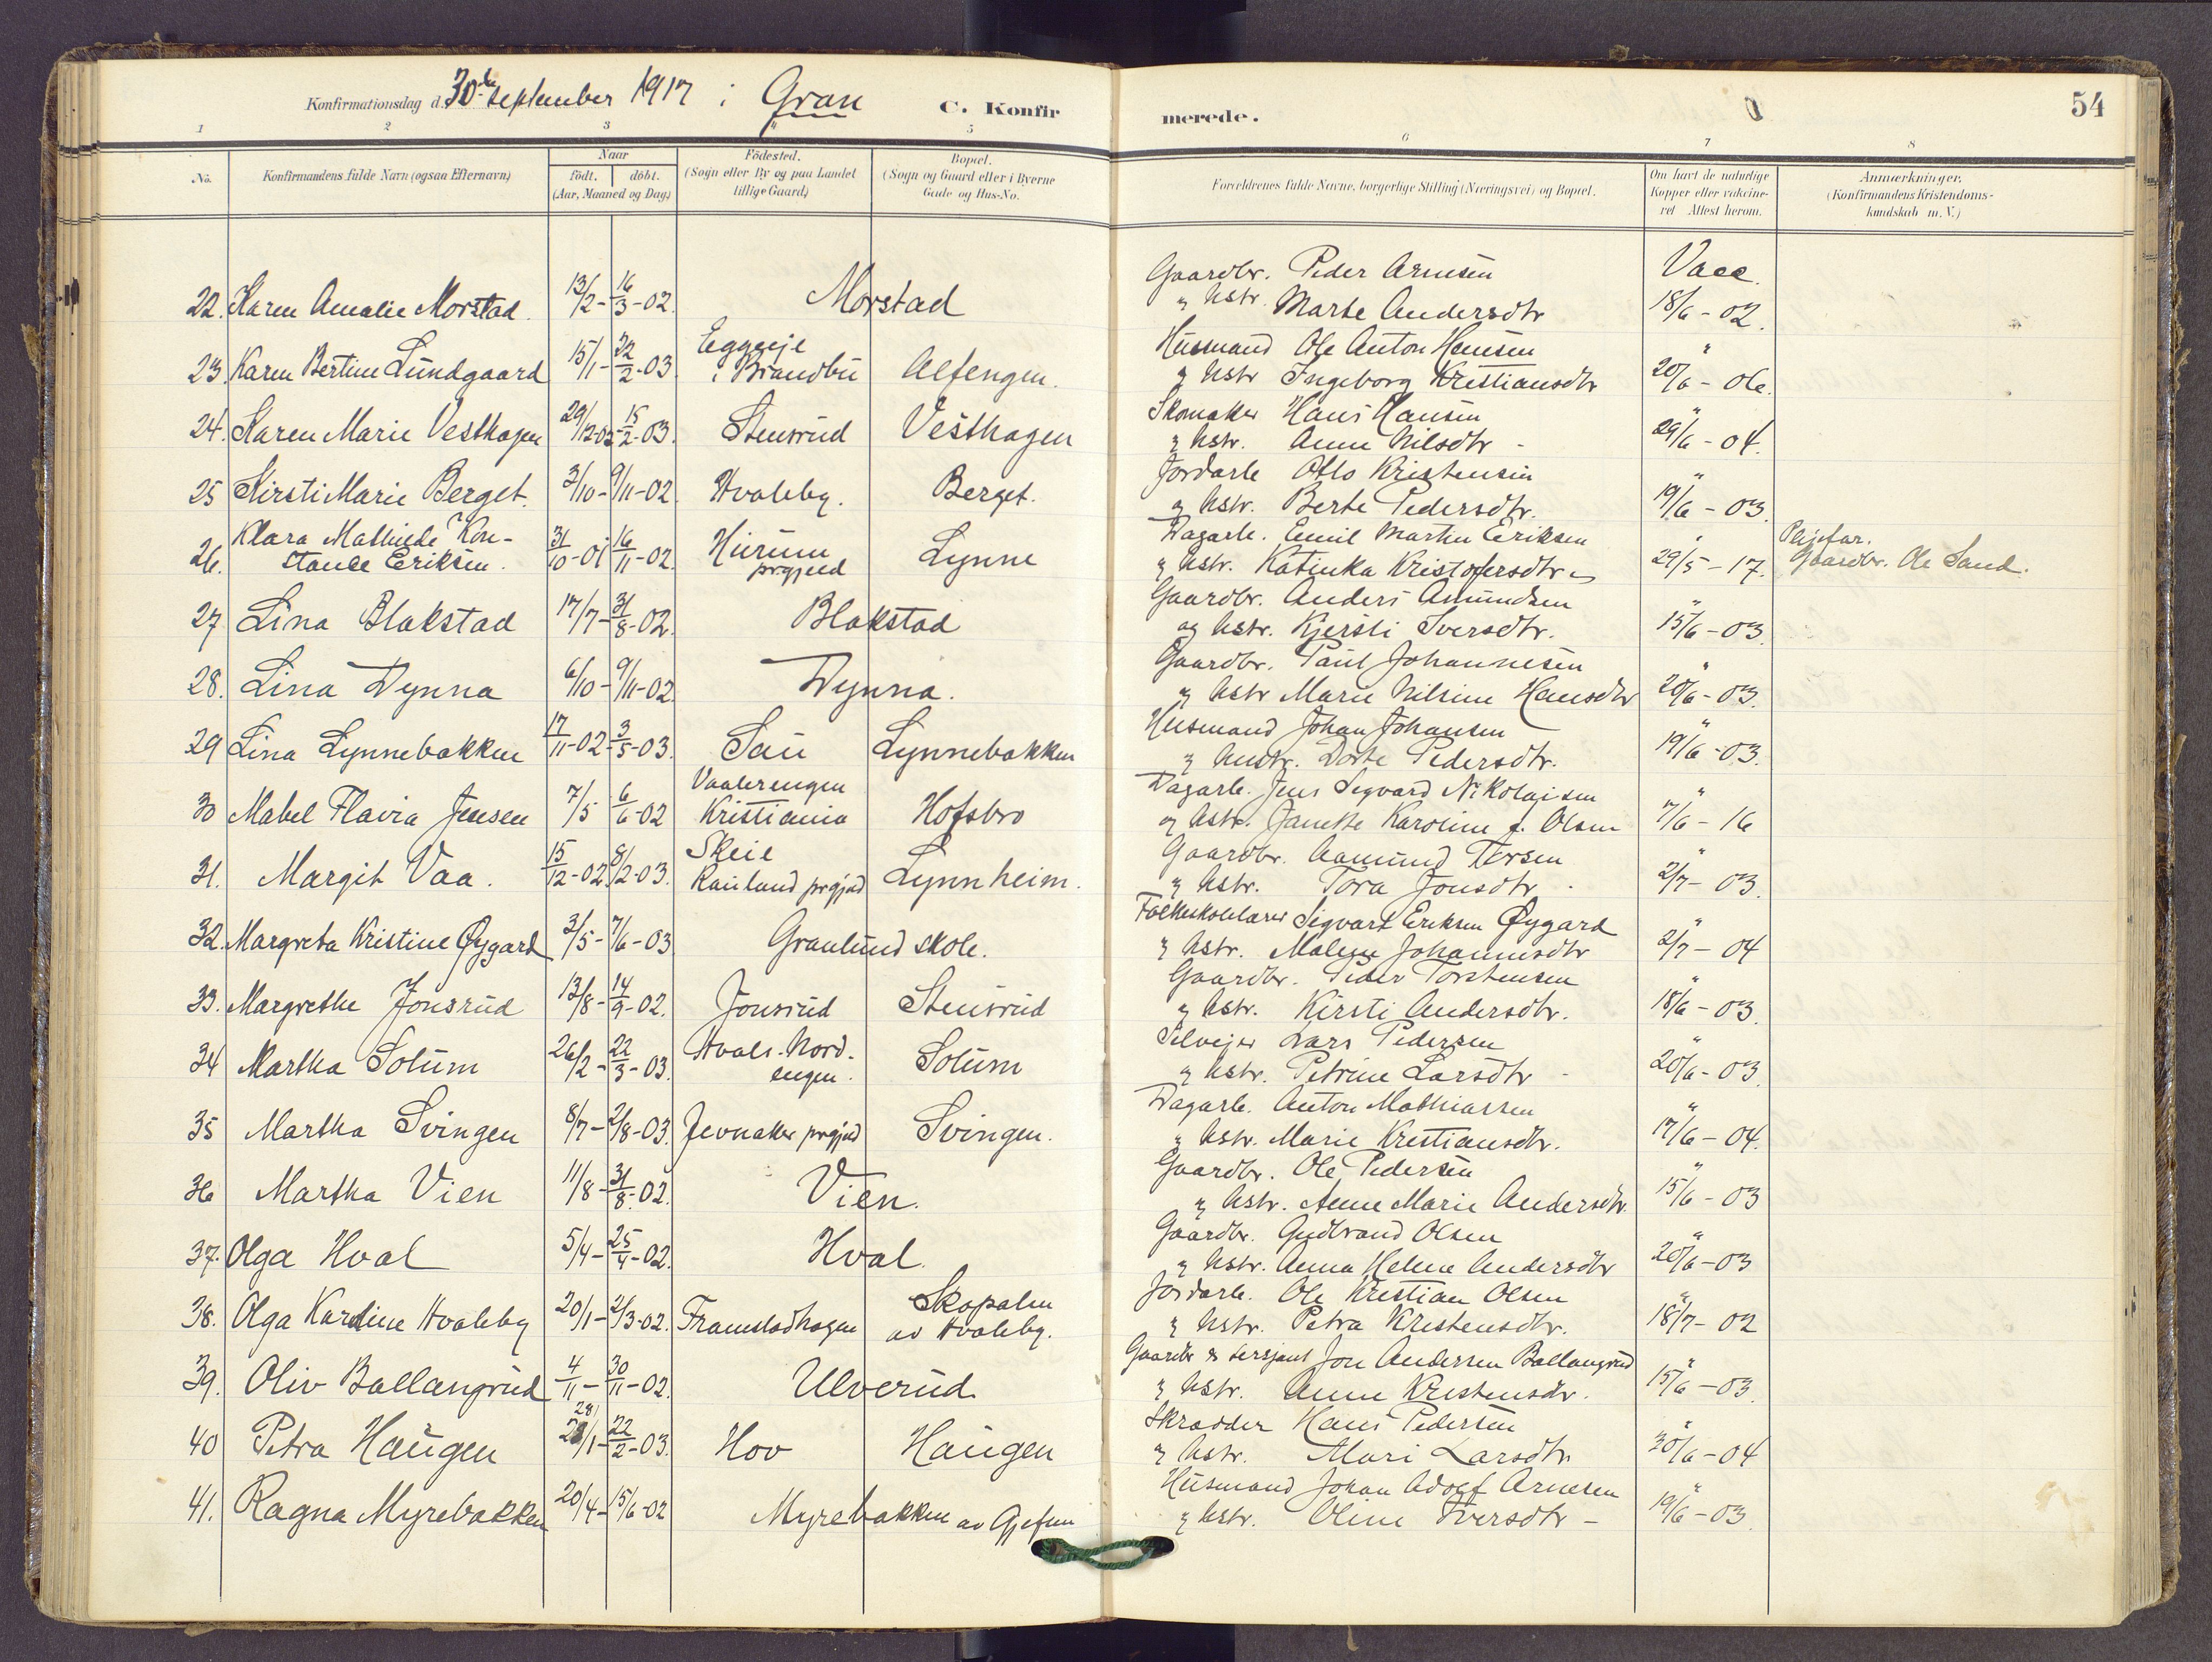 Konfirmationsdag d. 30te september 1917 i Gran
C. Konfirmerede.
54
1 2 3 5 6 7 8
No.
Konfirmandens fulde Navn (ogsaa Efternavn)
Naar
födt. döbt.
(Aar, Maaned og Dag)
Födested.
(Sogn eller By og paa Landet
tillige Gaard)
Bopæl.
(Sogn og Gaard eller i Byerne
Gade og Hus-No.
Forældrenes fulde Navne, borgerlige Stilling (Næringsvei) og Bopæl.
Om havt de naturlige
Kopper eller vakcine-
ret Attest herom.
Anmærkninger.
(Konfirmandens Kristendoms-
kundskab m. V.)
Gaardbr. Peder Arnesen Vacc.
22. Karen Amalie Morstad. 13/2 - 16/3 - 02. Morstad " hstr. Marte Andersdtr 18/6 - 02.
Eggeeje Husmand Ole Anton Hansen "
23. Karen Bertine Lundgaard 15/1 - 22/2 - 03 i Brandbu Alfengen. " hstr Ingeborg Kristiansdtr 20/6 - 06.
Skomaker Hans Hansen "
24. Karen Marie Vesthagen 29/12-02 - 15/2 - 03. Stensrud Vesthagen " hstr. Anne Nilsdtr - 29/6 - 04.
Jordarb Otto Kristensen "
25 Kirsti Marie Berget. 3/10 - 9/11 - 02. Hvaleby. Berget. " hstr. Berte Pedersdtr. 19/6 - 03.
Klara Mathilde Kon- Dagarb. Emil Martin Eriksen " Plejefar.
26. stance Eriksen. 31/10 - 01 16/11 - 02. Hurum prgjeld Lynne " hstr. Katinka Kristofersdtr 29/5 - 17. Gaardbr. Ole Sand.
Gaardbr. Anders Amundsen "
27 Lina Blakstad 17/7 - 31/8 - 02. Blakstad og hstr. Kjersti Iversdtr. 15/6 - 03.
Gaardbr. Paul Johannesen "
28. Lina Dynna 6/10 - 9/11 - 02 Dynna. " hstr Marie Nilsine Hansdtr 20/6 - 03.
Husmand Johan Johansen "
29 Lina Lynnebakken 17/11 - 02 - 3/5 - 03. Sau Lynnebakken " hustr. Dorte Pedersdtr. 19/6 - 03.
Vaalerengen Dagarb. Jens Segvard Nikolajsen "
30 Mabel Flavia Jensen 7/5 6/6 - 02 Kristiania Hofsbro og hstr. Janette Karoline f. Olsen 7/6 - 16
Skeie Gaardbr. Aamund Tarsen "
31. Margit Vaa. 15/12 - 02. 8/2 - 03. Rauland prgjeld Lynnheim. " hstr. Tora Jonsdtr. 2/7 - 03
Folkeskolelærer Sigvart Eriksen Øygard "
32. Margreta Kristine Øygard 3/5 - 7/6 - 03 Granlund skole. " hstr. Malene Johannesdtr 2/7 - 04
Gaardbr. Peder Torstensen "
33. Margrethe Jonsrud 13/8 - 14/9 - 02. Jonsrud Stensrud " hstr. Kirsti Andersdtr. 18/6 - 03
Hvals-Nord- Selvejer Lars Pedersen "
34 Martha Solum 26/2 - 22/3 - 03. engen. Solum " hstr. Petrine Larsdtr - 20/6 - 03.
Dagarb. Anton Mathiassen "
35 Martha Svingen 8/7 - 2/8 - 03. Jevnaker prgjeld Svingen. " hstr. Marie Kristiansdtr. 17/6 - 04.
Gaardbr. Ole Pedersen "
36 Martha Vien 11/8 - 31/8 - 02. Vien. " hstr. Anne Marie Andersdtr. 15/6 - 03
Gaardbr. Gudbrand Olsen "
37. Olga Hval 5/4 - 25/4 - 02. Hval. " hstr. Anna Helene Andersdtr 20/6 - 03
Skopalen Jordarb. Ole Kristian Olsen "
38. Olga Karoline Hvaleby 20/1 - 2/3 - 02. Framstadhagen av Hvaleby. " hstr. Petra Kristensdtr. 18/7 - 02
Gaardbr & sersjant Jon Andersen Ballangrud "
39. Oliv Ballangrud 4/11 - 30/11 - 02. Ulverud. " hstr. Anne Kristensdtr. 15/6 - 03.
28 Skrædder Hans Pedersen "
40 Petra Haugen /1 - 22/2 - 03. Hov Haugen " hstr. Mari Larsdtr. 30/6 - 04
Husmand Johan Adolf Arnesen "
41. Ragna Myrebakken 20/4 - 15/6 - 02 Myrebakken av Gjefsen " hstr. Oline Iversdtr - 19/6 - 03.